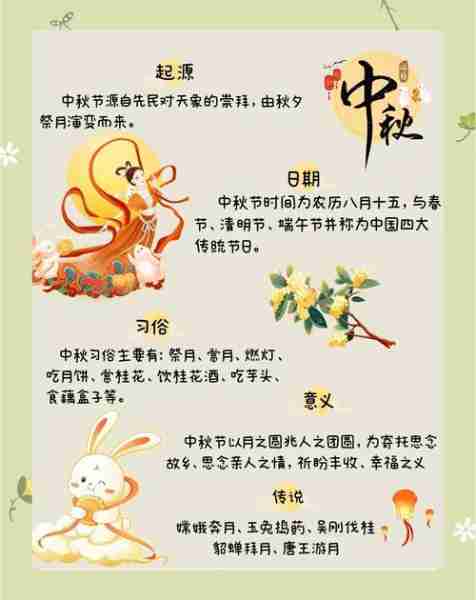 起源
中秋节源自先民对天象的崇拜，由秋夕
祭月演变而来。
中秋
日期
中秋节时间为农历八月十五，与春
节、清明节、端午节并称为中国四大
传统节日。
习俗
中秋习俗主要有：祭月、赏月、燃灯、
吃月饼、赏桂花、饮桂花酒、吃芋头、
食藕盒子等。
意义
中秋节以月之圆兆人之团圆，为寄托思念
故乡、思念亲人之情，祈盼丰收、幸福之义
传说
嫦娥奔月、玉兔捣药、吴刚伐桂
貂蝉拜月、唐王游月